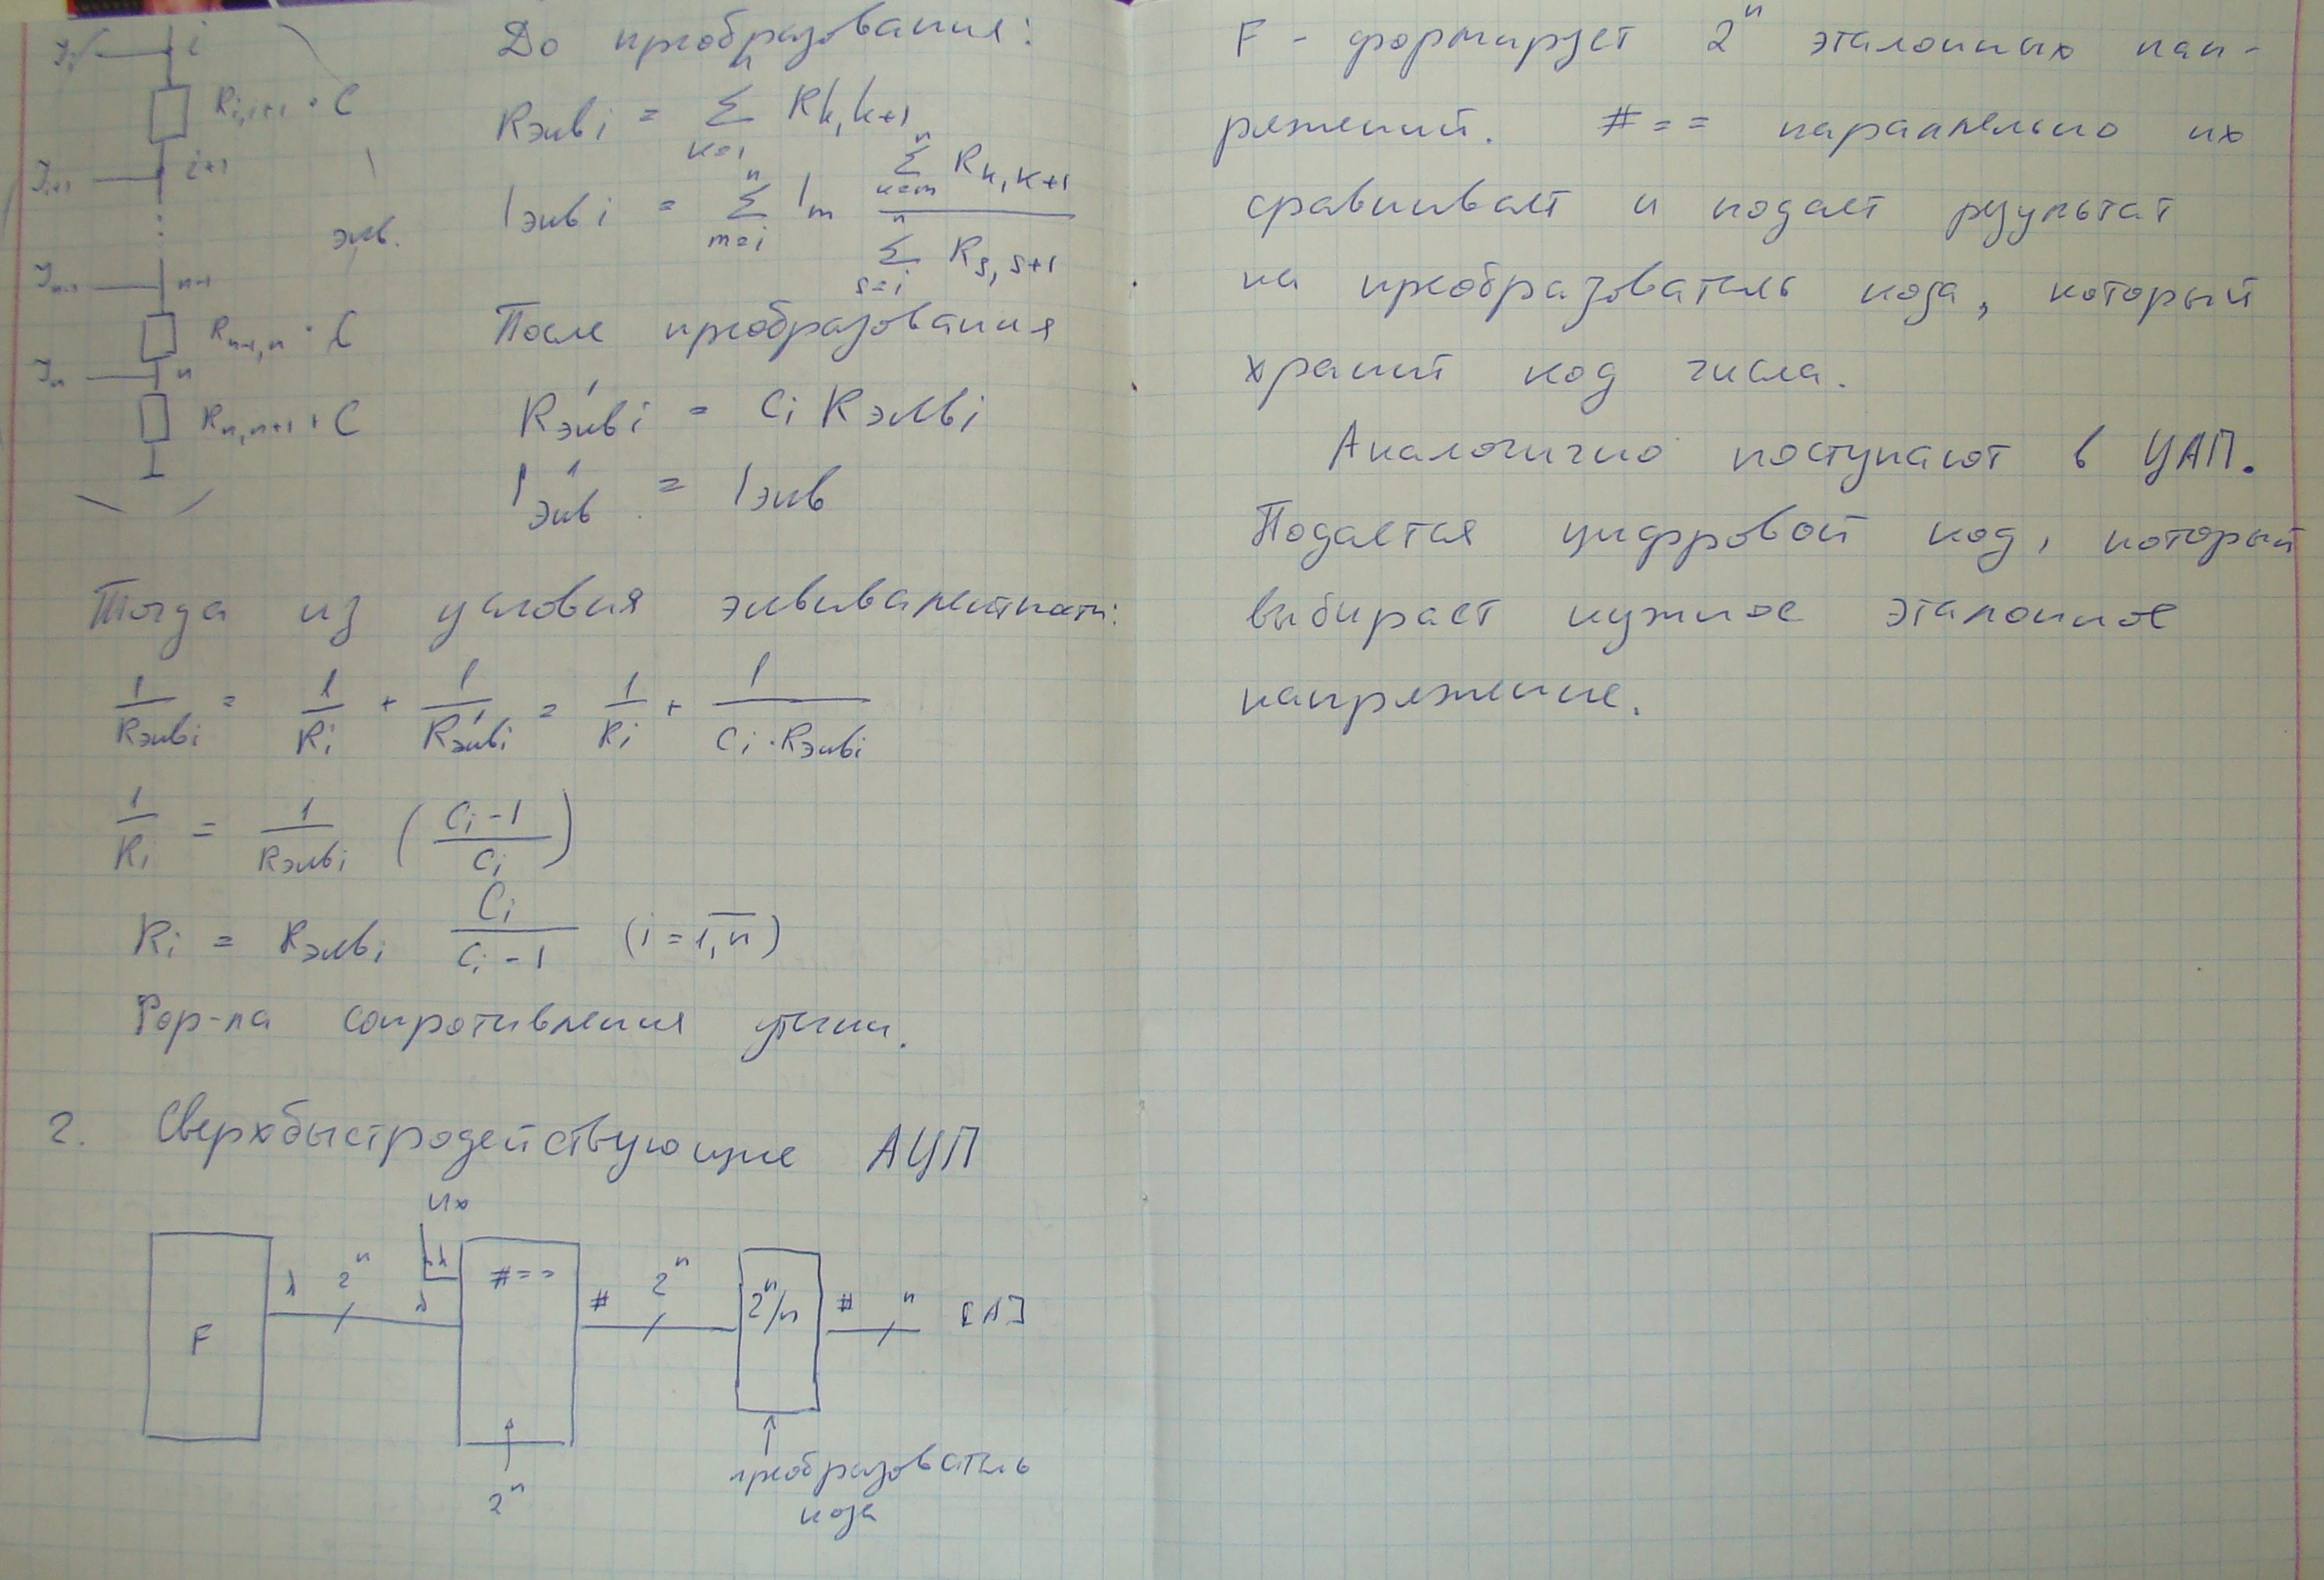 До преобразования:
Rэкв i = Σ(k=1, n) Rk,k+1
Iэкв i = Σ(m=i, n) Im (Σ(k=m, n) Rk,k+1) / (Σ(s=i, n) Rs,s+1)
После преобразования
R'экв i = Ci Rэкв i
I'экв = Iэкв
i
Ri,i+1 · C
Ji+1 i+1
экв.
Jn-1 n-1
Rn-1,n · C
Jn n
Rn,n+1 · C
Тогда из условия эквивалентности:
1/Rэкв i = 1/Ri + 1/R'экв i = 1/Ri + 1/(Ci · Rэкв i)
1/Ri = 1/Rэкв i ((Ci - 1)/Ci)
Ri = Rэкв i Ci/(Ci - 1) (i = 1,n)
Фор-ла сопротивления утечки.
2. Сверхбыстродействующие АЦП
Ux
F λ 2ⁿ λ #== # 2ⁿ 2ⁿ/n # n [A]
2ⁿ
преобразователь
кода
F - формирует 2ⁿ эталонных нап-
ряжений. #== параллельно их
сравнивает и подает результат
на преобразователь кода, который
хранит код числа.
Аналогично поступают в ЦАП.
Подается цифровой код, который
выбирает нужное эталонное
напряжение.